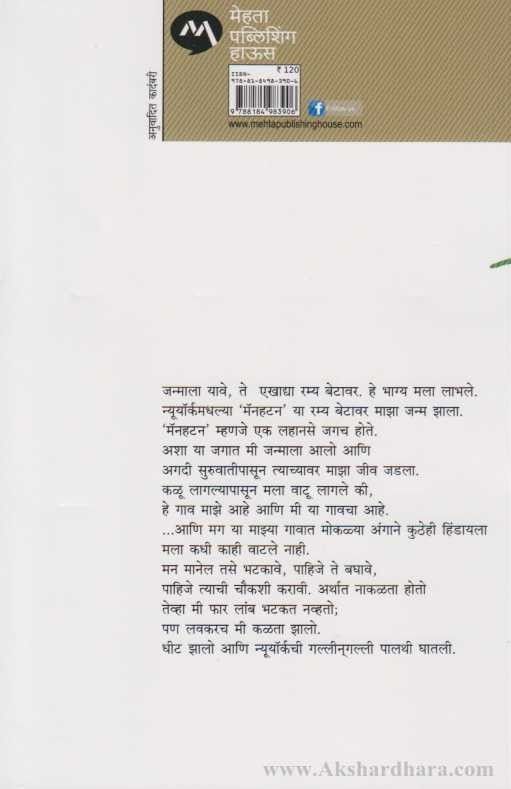 मेहता
पब्लिशिंग
हाऊस
₹ 120
ISBN-
978-81-8498-390-6
9 788184 983906
f
www.mehtapublishinghouse.com
अनुवादित कादंबरी
जन्माला यावे, ते एखाद्या रम्य बेटावर. हे भाग्य मला लाभले.
न्यूयॉर्कमधल्या ‘मॅनहटन’ या रम्य बेटावर माझा जन्म झाला.
‘मॅनहटन’ म्हणजे एक लहानसे जगच होते.
अशा या जगात मी जन्माला आलो आणि
अगदी सुरुवातीपासून त्याच्यावर माझा जीव जडला.
कळू लागल्यापासून मला वाटू लागले की,
हे गाव माझे आहे आणि मी या गावचा आहे.
...आणि मग या माझ्या गावात मोकळ्या अंगाने कुठेही हिंडायला
मला कधी काही वाटले नाही.
मन मानेल तसे भटकावे, पाहिजे ते बघावे,
पाहिजे त्याची चौकशी करावी. अर्थात नाकळता होतो
तेव्हा मी फार लांब भटकत नव्हतो;
पण लवकरच मी कळता झालो.
धीट झालो आणि न्यूयॉर्कची गल्लीन्‌गल्ली पालथी घातली.
www.Akshardhara.com